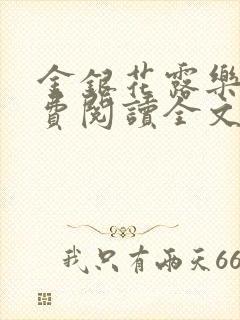 金銀花露樂
費閱讀全文
我只有兩天66